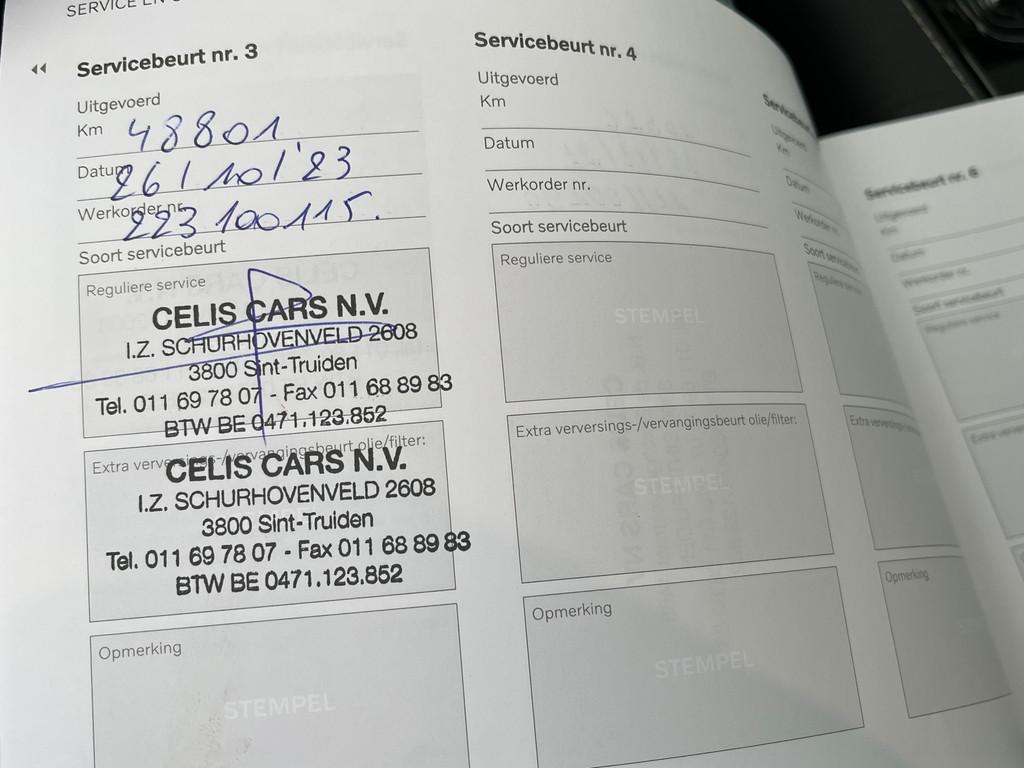 SERVICE EN
Servicebeurt nr. 3
Uitgevoerd
Km 48801
Datum 26/10/'23
Werkorder nr. 223100115.
Soort servicebeurt
Reguliere service
CELIS CARS N.V.
I.Z. SCHURHOVENVELD 2608
3800 Sint-Truiden
Tel. 011 69 78 07 - Fax 011 68 89 83
BTW BE 0471.123.852
Extra verversings-/vervangingsbeurt olie/filter:
CELIS CARS N.V.
I.Z. SCHURHOVENVELD 2608
3800 Sint-Truiden
Tel. 011 69 78 07 - Fax 011 68 89 83
BTW BE 0471.123.852
Opmerking
STEMPEL
Servicebeurt nr. 4
Uitgevoerd
Km
Datum
Werkorder nr.
Soort servicebeurt
Reguliere service
STEMPEL
Extra verversings-/vervangingsbeurt olie/filter:
STEMPEL
Opmerking
STEMPEL
Servicebeurt
Uitgevoerd
Km
Datum
Werkorder
Soort servicebeurt
Reguliere service
Extra verversings-/vervangings
Opmerking
Servicebeurt nr. 6
Uitgevoerd
Km
Datum
Werkorder nr.
Soort servicebeurt
Reguliere service